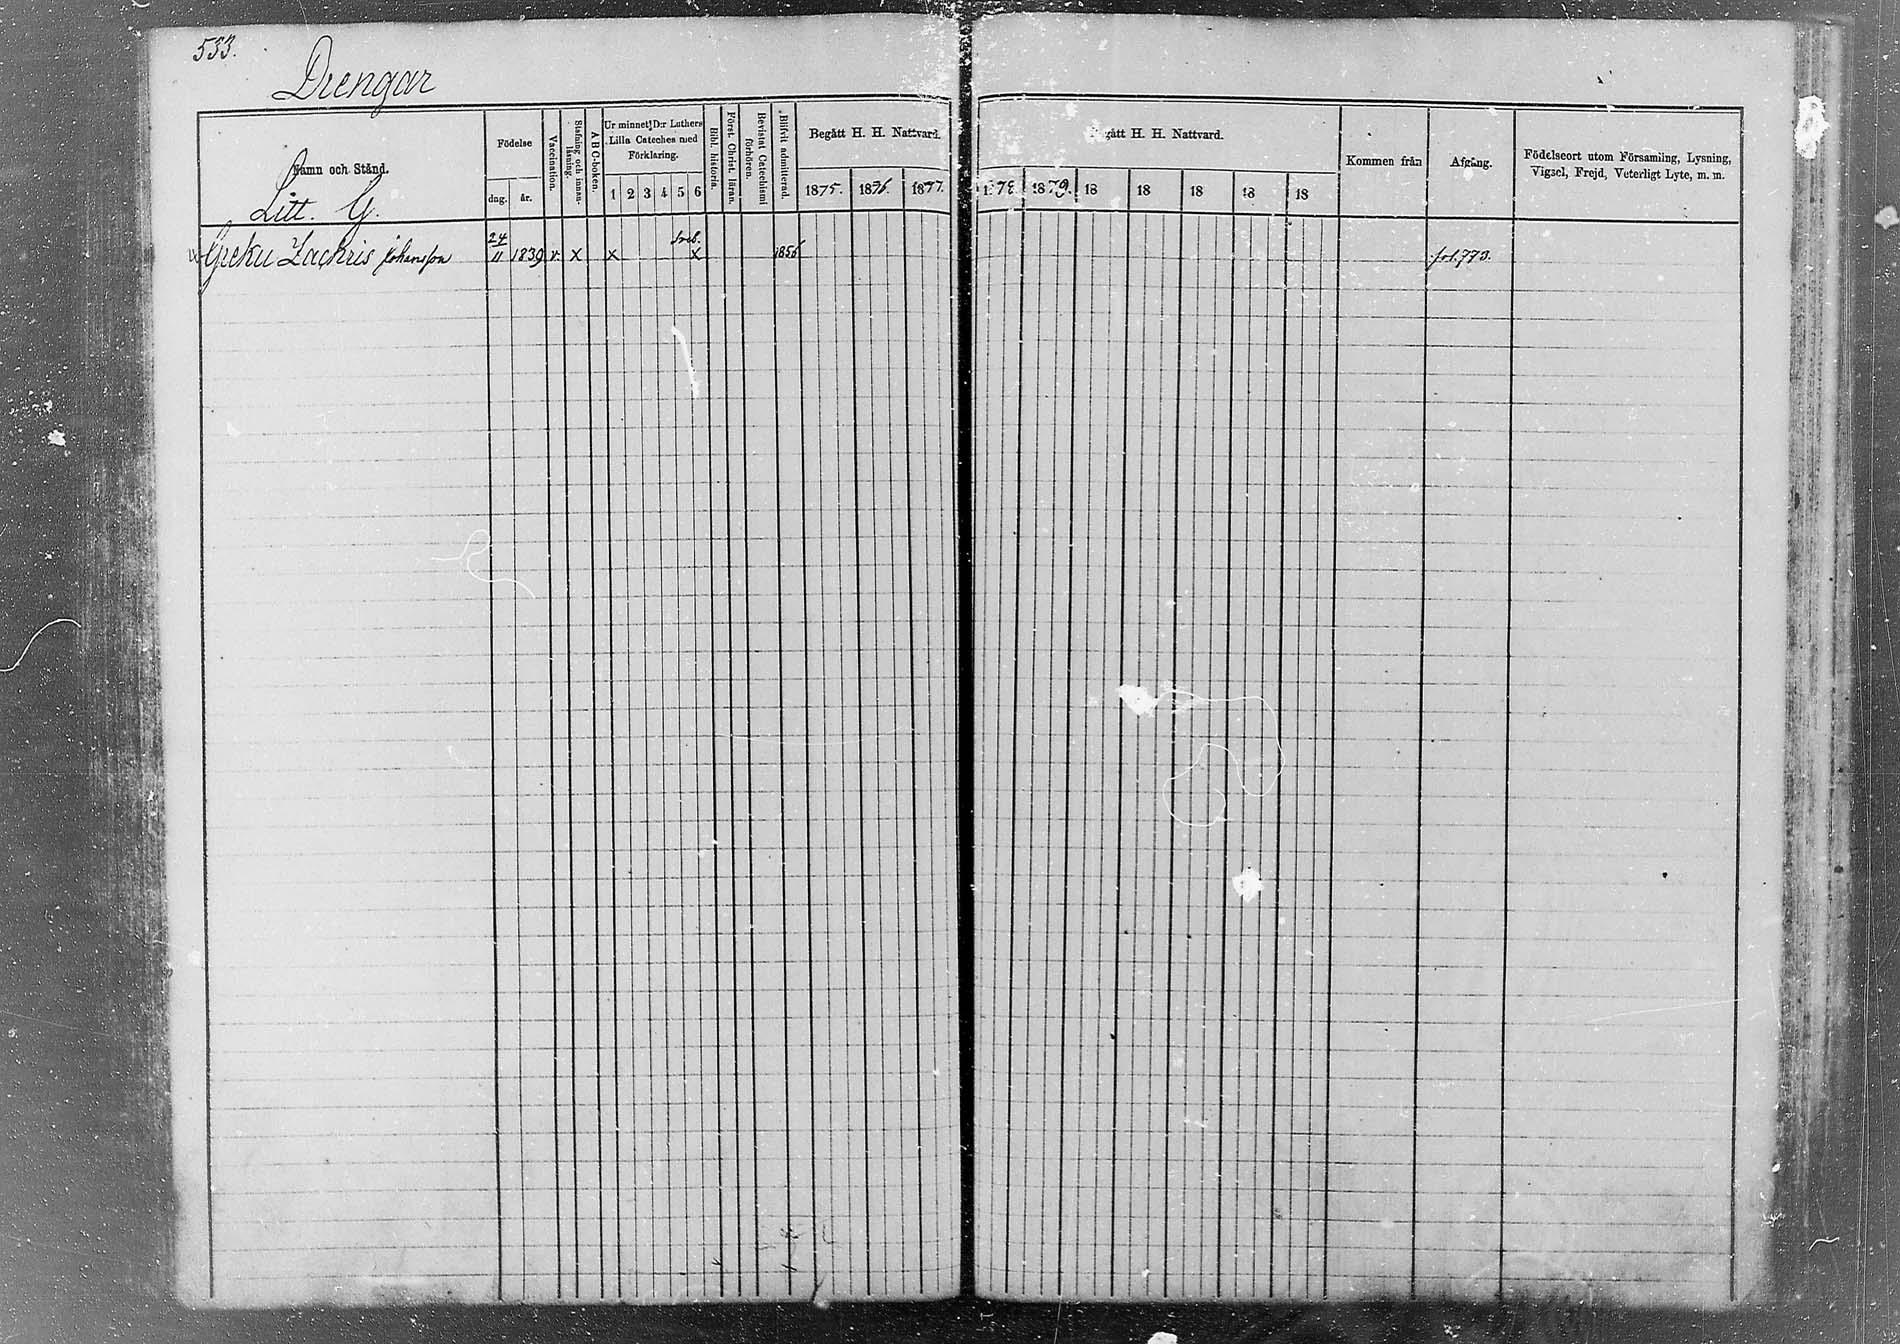 533.
Drengar
Namn och Stånd.
Litt. G.
Födelse
dag.
år.
Vaccination.
Stafning och innanläsning.
ABC-boken.
Ur minnet D:r Luthers Lilla Cateches med Förklaring.
1 2 3 4 5 6
Bibl. historia.
Först. Christ. läran.
Bevistat Catechismi förhören.
Blifvit admitterad.
Begått H. H. Nattvard.
1875. 1876. 1877.
Begått H. H. Nattvard.
1878 1879. 18 18 18 18 18
Kommen från
Afgång.
Födelseort utom Församling, Lysning, Vigsel, Frejd, Veterligt Lyte, m. m.
Greku Zachris Johansson 24/11 1839 v. x x x 1856 fol. 773.